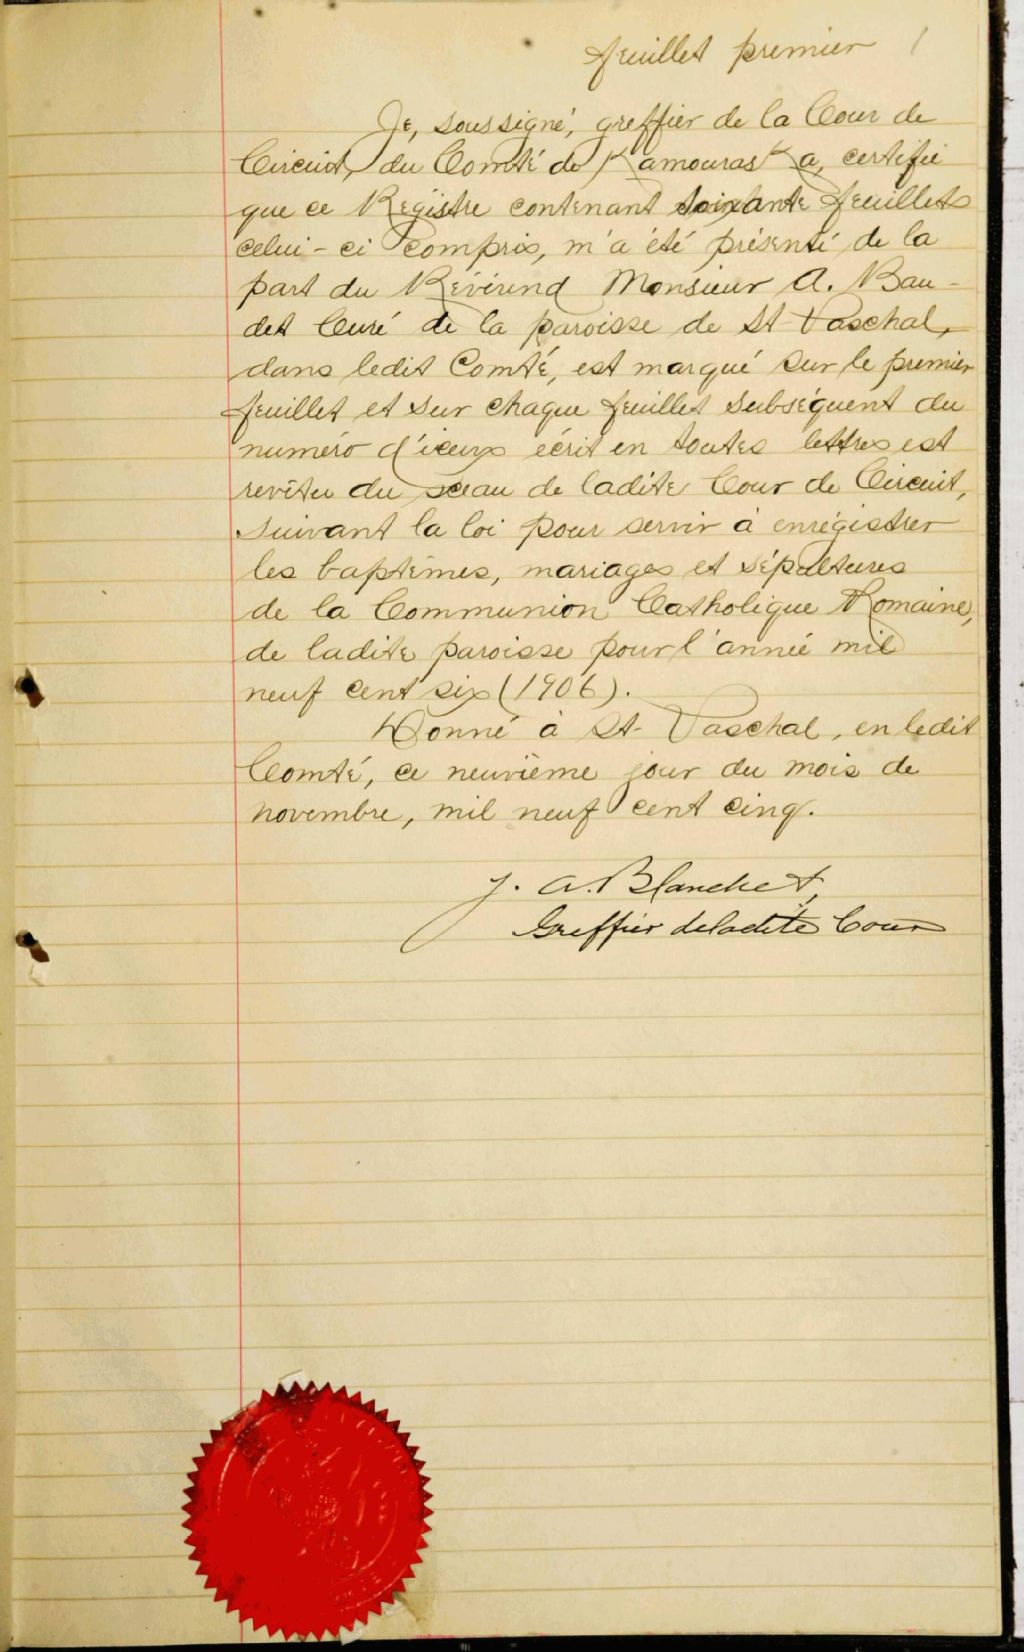 feuillet premier 1
Je, soussigné, greffier de la Cour de
Circuit, du Comté de Kamouraska, certifie
que ce Régistre contenant soixante feuillets
celui-ci compris, m'a été présenté de la
part du Révérend Monsieur A. Bau-
det Curé de la paroisse de St Paschal,
dans ledit Comté, est marqué sur le premier
feuillet et sur chaque feuillet subséquent du
numéro d'iceux écrit en toutes lettres est
revêtu du sceau de ladite Cour de Circuit,
suivant la loi pour servir à enrégistrer
les baptêmes, mariages et sépultures
de la Communion Catholique Romaine,
de ladite paroisse pour l'année mil
neuf cent six (1906).
Donné à St-Paschal, en ledit
Comté, ce neuvième jour du mois de
novembre, mil neuf cent cinq.
J. A. Blanchet,
Greffier de ladite Cour